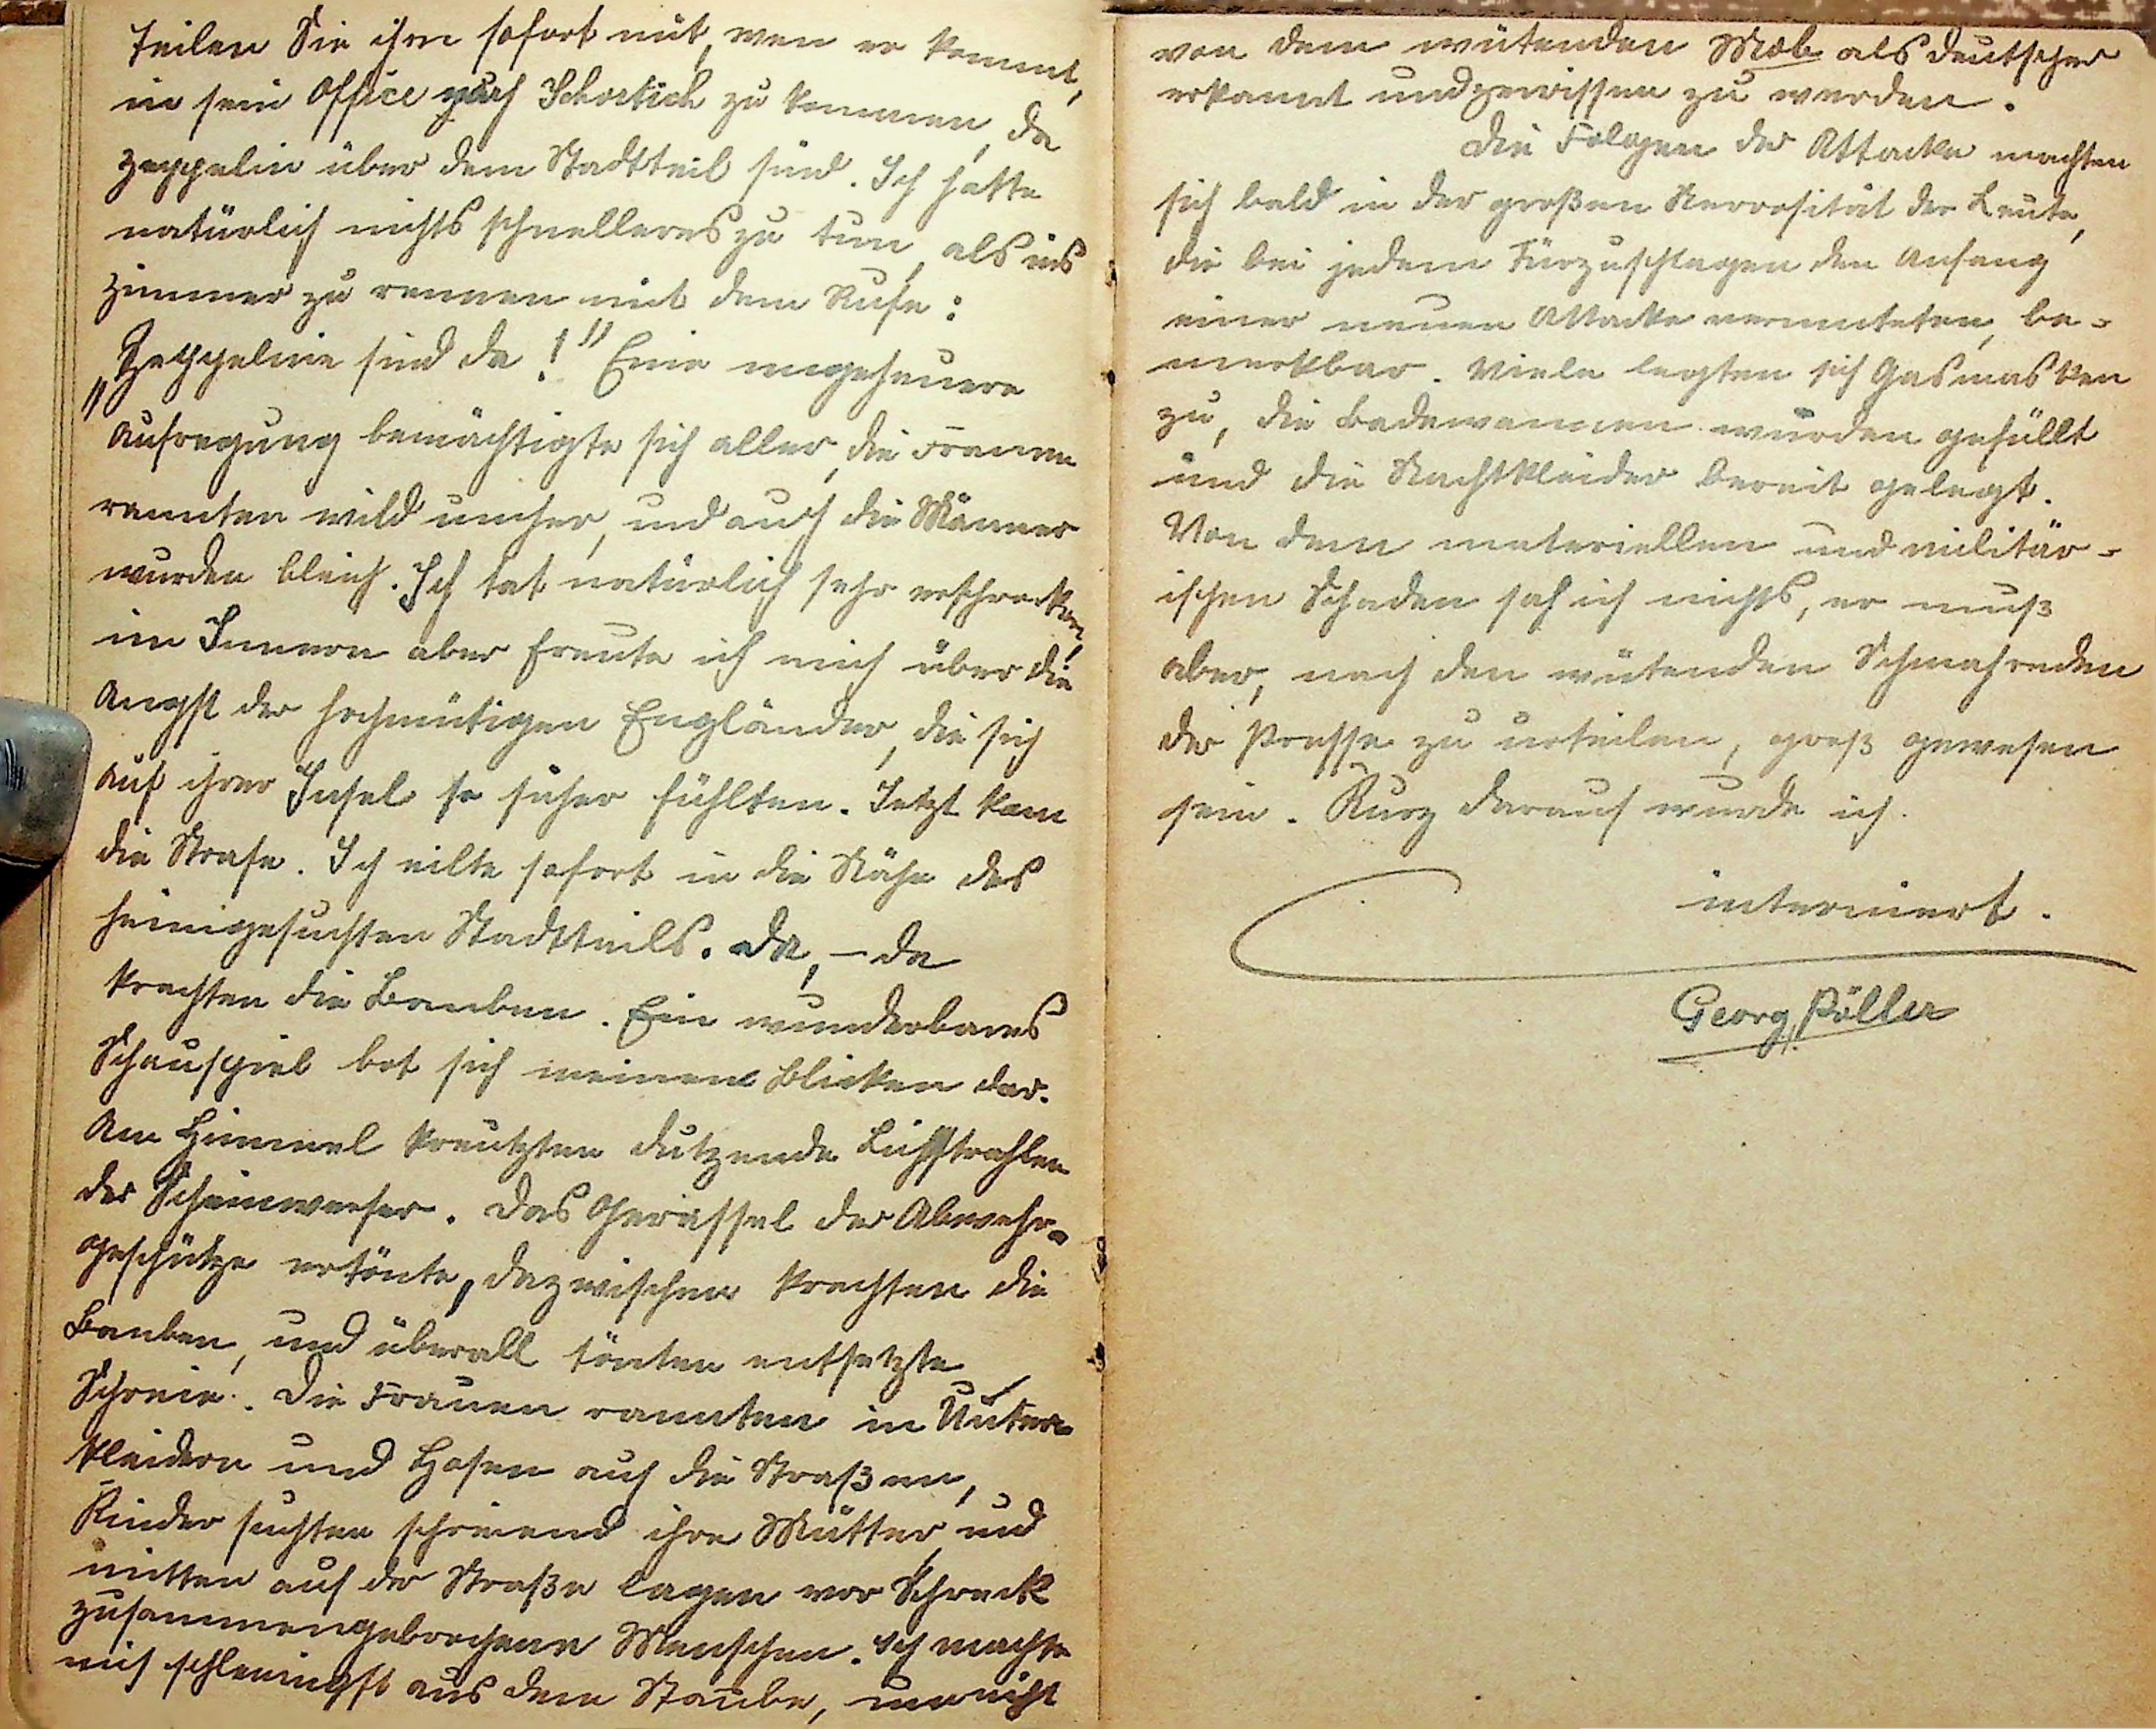 teilen Sie ihm sofort mit, wen er kommt,
in sein Office nach Schortich zu kommen, da
Zeppelin über dem Stadtteil sind. Ich hatte
natürlich nichts schnelleres zu tun, als ins
Zimmer zu rennen mit dem Rufe:
„Zeppeline sind da!" Eine ungeheuere
Aufregung bemächtigte sich aller, die Frauen
rannten wild umher, und auch die Männer
wurden bleich. Ich tat natürlich sehr erschrocken,
im Innern aber freute ich mich über die
Angst der hochmütigen Engländer, die sich
auf ihrer Insel so sicher fühlten. Jetzt kam
die Strafe. Ich eilte sofort in die Nähe des
heimgesuchten Stadtteils. Da, – da
krachten die Bomben. Ein wunderbares
Schauspiel bot sich meinen Blicken dar.
Am Himmel kreutzten dutzende Lichtstrahlen
der Scheinwerfer. Das Gerassel der Abwehr-
geschütze ertönte, dazwischen krachten die
Bomben, und überall tönten entsetzte
Schreie. Die Frauen rannten in Unter-
kleidern und Hosen auf die Straßen,
Kinder suchten schreiend ihre Mütter, und
mitten auf der Straße lagen vor Schreck
zusammengebrochene Menschen. Ich machte
mich schleunigst aus dem Staube, um nicht
von dem wütenden Mob als Deutscher
erkannt und zerrissen zu werden.
Die Folgen der Attacke machten
sich bald in der großen Nervosität der Leute,
die bei jedem Türzuschlagen den Anfang
einer neuen Attacke vermuteten, be-
merkbar. Viele legten sich Gasmasken
zu, die Badewannen wurden gefüllt
und die Nachtkleider bereit gelegt.
Von dem materiellen und militär-
ischen Schaden sah ich nichts, er muß
aber, nach den wütenden Schmahreden
der Presse zu urteilen, groß gewesen
sein. Kurz darauf wurde ich
interniert.
Georg Pöller